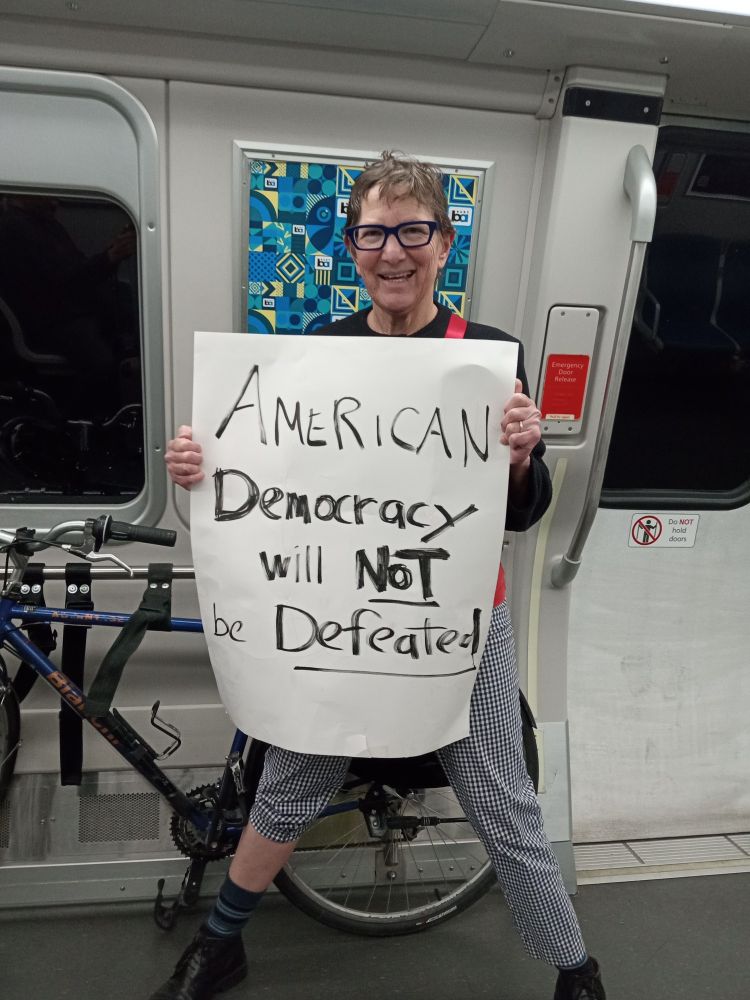 AMERICAN
Democracy
will NOT
be Defeated
Emergency
Door
Release
Do NOT
hold
doors
Bianchi